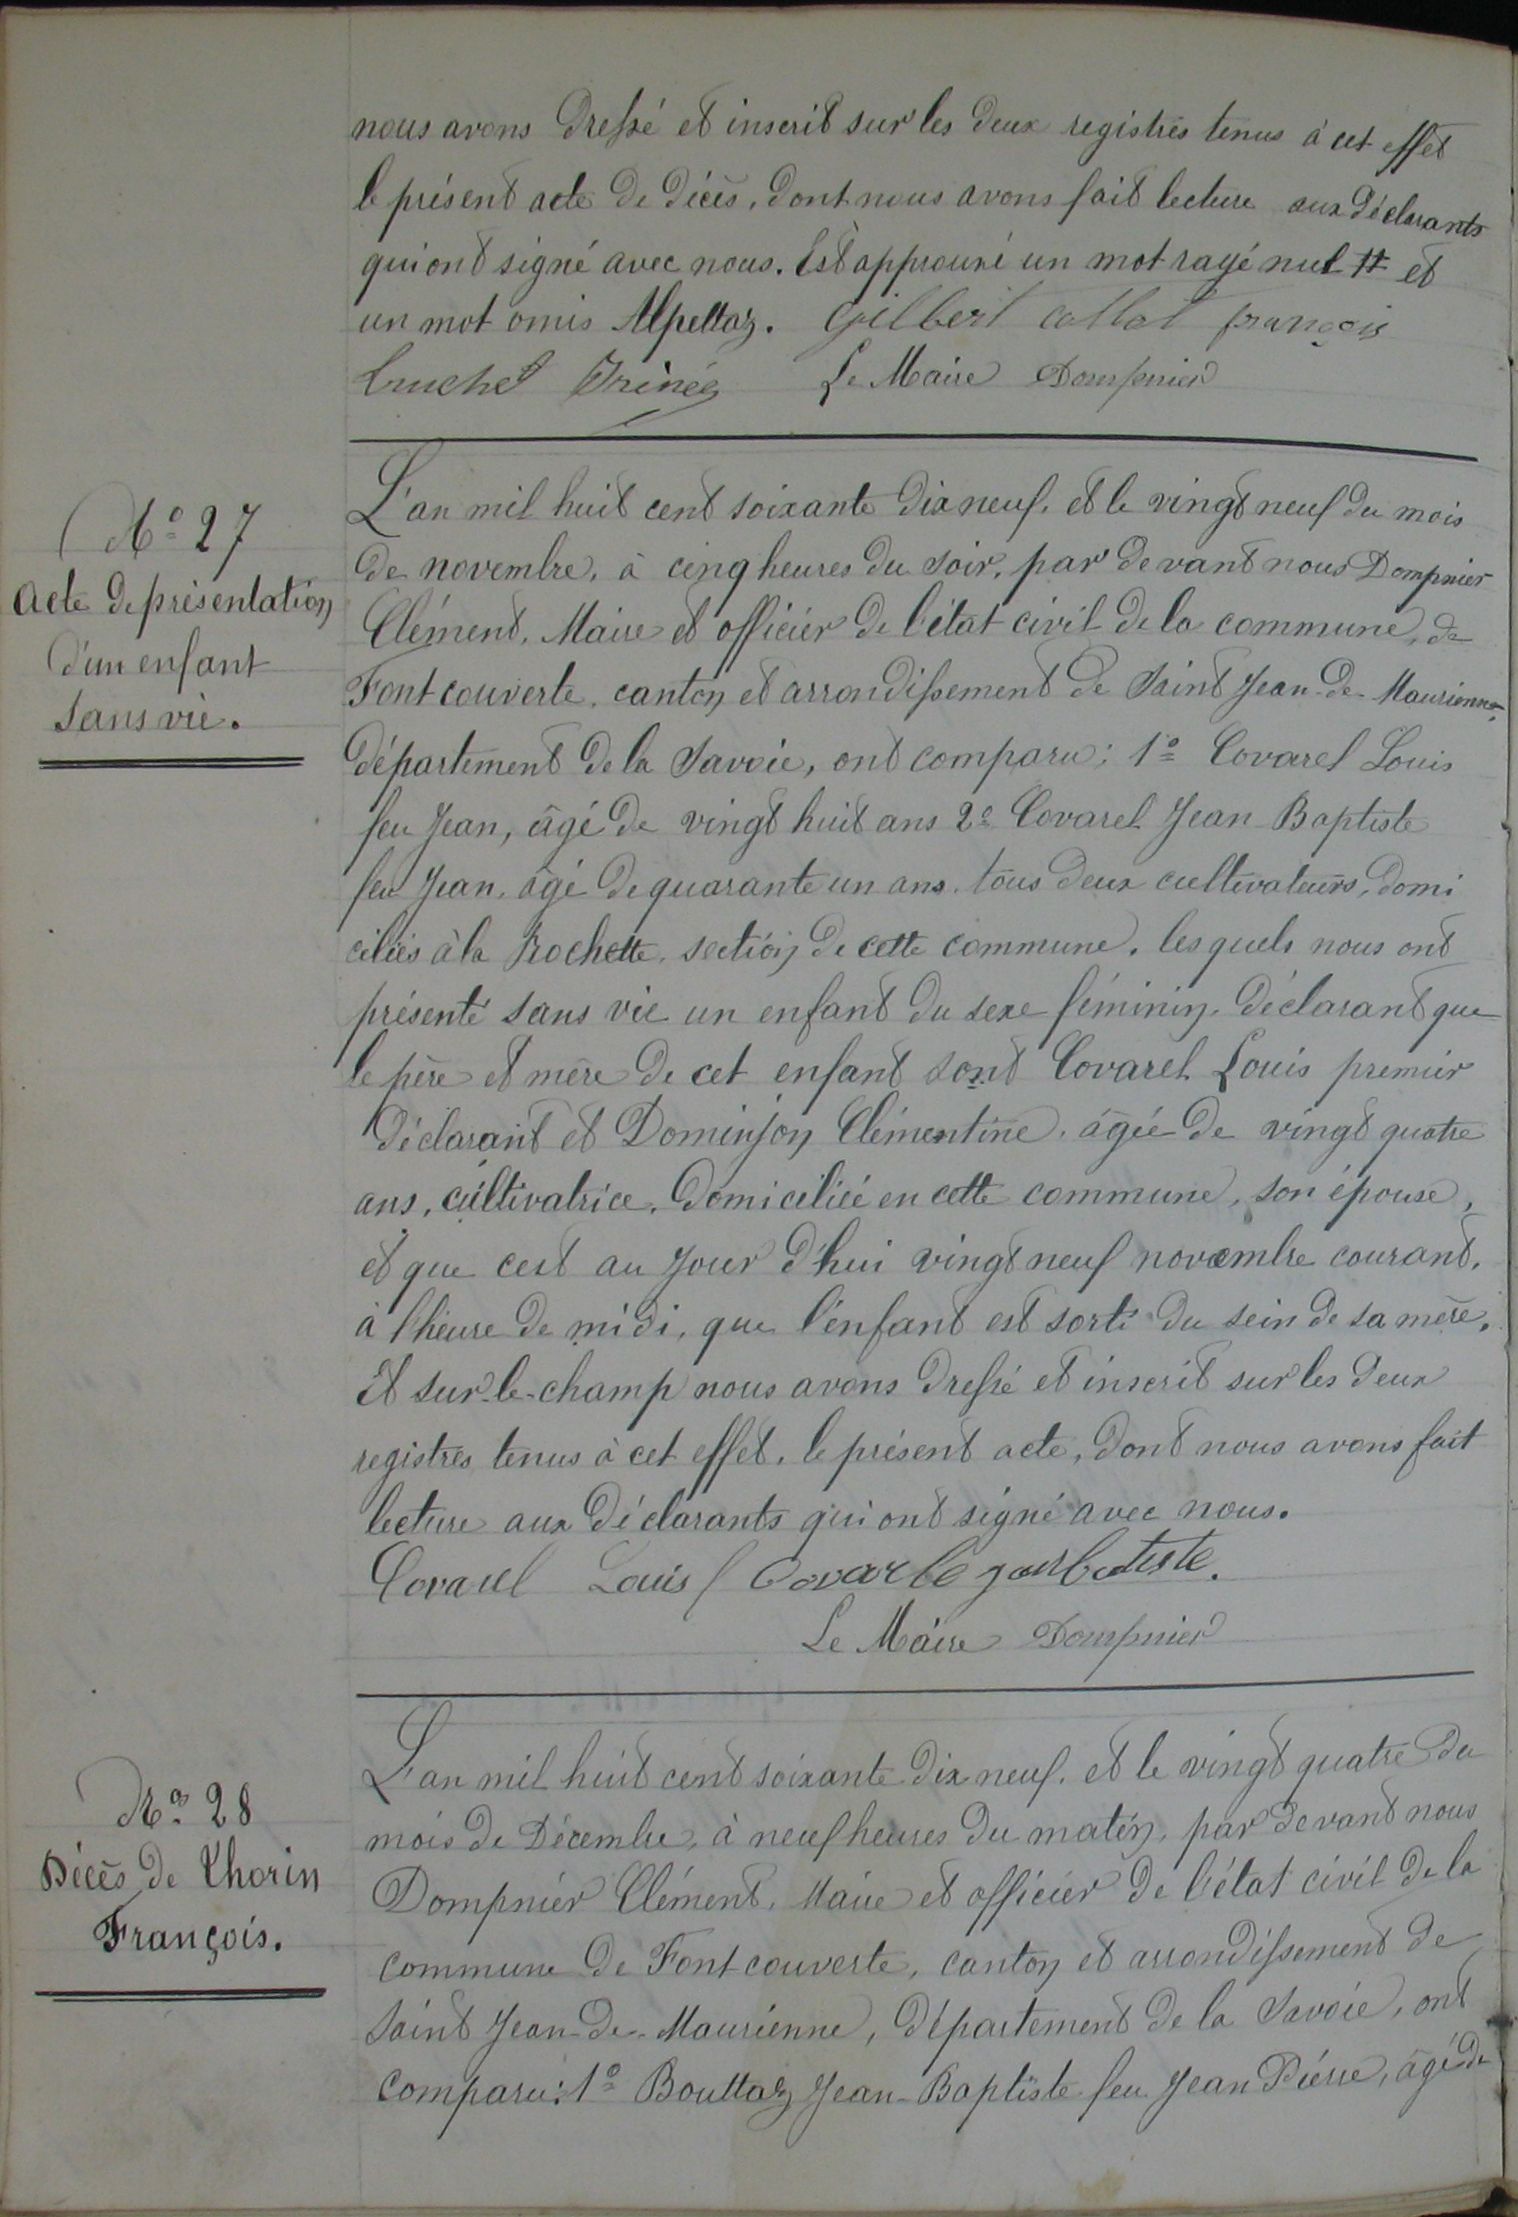 nous avons dressé et inscrit sur les deux registres tenus à cet effet
le présent acte de décès, dont nous avons fait lecture aux déclarants
qui ont signé avec nous. Est approuvé un mot rayé nul # et
un mot omis Alpettaz. Gilbert collat françois
Truchet Irénée Le Maire Dompnier
N° 27
Acte de présentation
d'un enfant
sans vie.
L'an mil huit cent soixante dix neuf, et le vingt neuf du mois
de novembre, à cinq heures du soir, par devant nous Dompnier
Clément, Maire et officier de l'état civil de la commune, de
Fontcouverte, canton et arrondissement de Saint Jean-de-Maurienne,
département de la Savoie, ont comparu: 1° Covarel Louis
feu Jean, âgé de vingt huit ans 2° Covarel Jean-Baptiste
feu Jean, âgé de quarante un ans, tous deux cultivateurs, domi
ciliés à la Rochette, section de cette commune, lesquels nous ont
présenté sans vie un enfant du sexe féminin, déclarant que
le père et mère de cet enfant sont Covarel Louis premier
déclarant et Dominjon Clémentine, âgée de vingt quatre
ans, cultivatrice, domiciliée en cette commune, son épouse,
et que cest au jour d'hui vingt neuf novembre courant,
à l'heure de midi, que l'enfant est sorti du sein de sa mère.
Et sur-le-champ nous avons dressé et inscrit sur les deux
registres tenus à cet effet, le présent acte, dont nous avons fait
lecture aux déclarants qui ont signé avec nous.
Covarel Louis Covarle jean batiste.
Le Maire Dompnier
N° 28
Décès de Thorin
François.
L'an mil huit cent soixante dix neuf, et le vingt quatre du
mois de Décembre, à neuf heures du matin, par devant nous
Dompnier Clément, Maire et officier de l'état civil de la
commune de Fontcouverte, canton et arrondissement de
Saint Jean-de-Maurienne, département de la Savoie, ont
comparu: 1° Bouttaz Jean-Baptiste feu Jean Pierre, âgé de